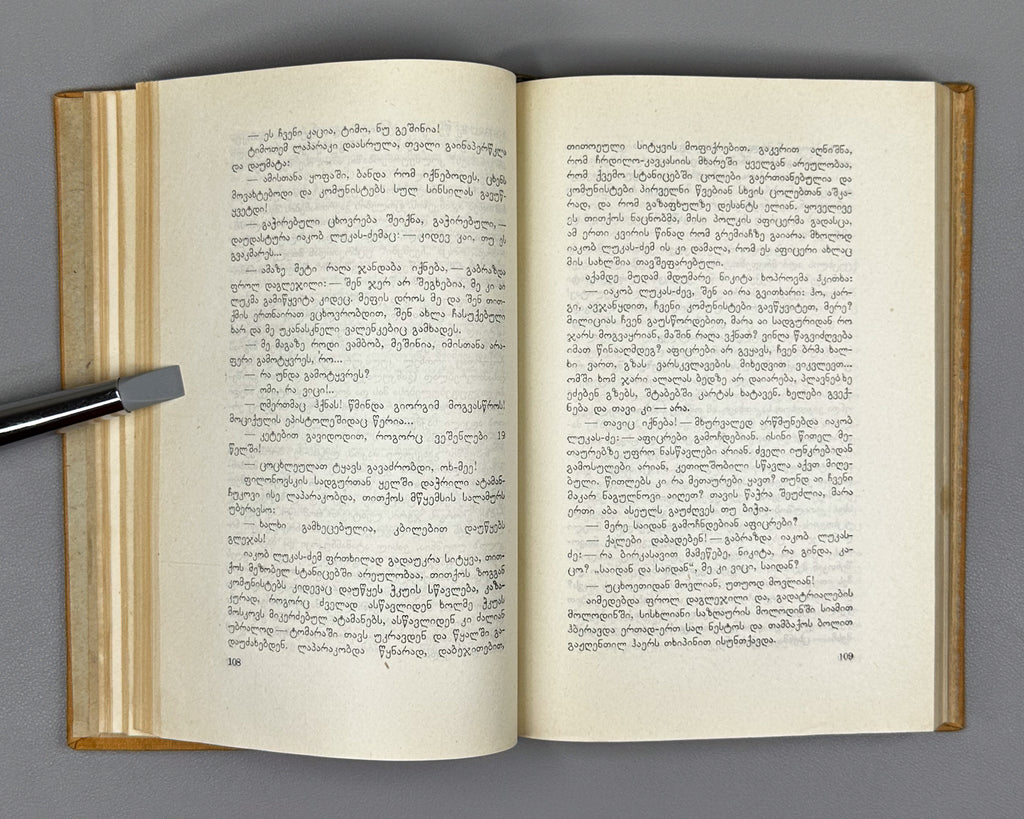 — ეს ჩვენი კაცია, ტიმო, ნუ გეშინია!
ტიმოთემ ლაპარაკი დაასრულა, თვალი გაინაპერწკლა
და დაუმატა:
— ამისთანა ყოფაში, ბანდა რომ იქნებოდეს, ცხენს
მოვახტებოდი და კომუნისტებს სულ სინსილას გავუწ-
ყვეტდი!
— გაჭირებული ცხოვრება შეიქნა, გაჭირებული, —
დაუდასტურა იაკობ ლუკას-ძემაც: — კიდევ კაი, თუ ეს
გვაკმარეს...
— ამაზე მეტი რაღა ჯანდაბა იქნება, — გაბრაზდა
ფროლ დაგლეჯილი: — შენ ჯერ არ შეგხებია, მე კი აი
ლუკმა გამიწყვიტა კიდეც. მეფის დროს მე და შენ თით-
ქმის ერთნაირათ ვცხოვრობდით, შენ ახლა ჩასუქებული
ხარ და მე უკანასკნელი ვალენკებიც გამხადეს.
— მე მაგაზე როდი ვამბობ, მეშინია, იმისთანა არა-
ფერი გამოტყვრეს, რო...
— რა უნდა გამოტყვრეს?
— ომი. რა ვიცი!..
— ღმერთმაც ჰქნას! წმინდა გიორგიმ მოგვასწროს!
მოციქულის ეპისტოლეშიდაც წერია...
— კეტებით გავიდოდით, როგორც ვეშენლები 19
წელში!
— ცოცხლეულათ ტყავს გავაძრობდი, ოხ-მეე!
ფილონოვსკის სადგურთან ყელში დაჭრილი ატამან-
ჩუკოვი ისე ლაპარაკობდა, თითქოს მწყემსის სალამურს
უბერავსო:
— ხალხი გამხეცებულია, კბილებით დაუწყებს
გლეჯას!
იაკობ ლუკას-ძემ ფრთხილად გადაუკრა სიტყვა, თით-
ქოს მეზობელ სტანიცებში არეულობაა, თითქოს ზოგგან
კომუნისტებს კიდევაც დაუწყეს ჰკუის სწავლება, კაზა-
კურად, როგორც ძველად ასწავლიდენ ხოლმე ჰკუას
მოსკოვს მიკერძებულ ატამანებს, ასწავლიდენ კი ძალიან
უბრალოდ — ტომარაში თავს უკრავდენ და წყალში გა-
დაუძახებდენ. ლაპარაკობდა წყნარად, დაბეჯითებით,
108
თითოეული სიტყვის მოფიქრებით. გაკვრით აღნიშნა,
რომ ჩრდილო-კავკასიის მხარეში ყველგან არეულობაა,
რომ ქვემო სტანიცებში ცოლები გაერთიანებულია და
კომუნისტები პირველნი წვებიან სხვის ცოლებთან აშკა-
რად, და რომ გაზაფხულზე დესანტს ელიან. ყოველივე
ეს თითქოს ნაცნობმა, მისი პოლკის აფიცერმა გადასცა,
ამ ერთი კვირის წინად რომ გრემიაჩზე გაიარა. მხოლოდ
იაკობ ლუკას-ძემ ის კი დამალა, რომ ეს აფიცერი ახლაც
მის სახლშია თავშეფარებული.
აქამდე მუდამ მდუმარე ნიკიტა ხოპროვმა ჰკითხა:
— იაკობ ლუკას-ძევ, შენ აი რა გვითხარი: ჰო, კარ-
გი, ავჯანყდით, ჩვენი კომუნისტები გავწყვიტეთ, მერე?
მილიციას ჩვენ გაუსწორდებით, მარა აი სადგურიდან რო
ჯარს მოგვაყრიან, მაშინ რაღა ვქნათ? ვინღა წაგვიძღვება
იმათ წინააღმდეგ? აფიცრები არ გვყავს, ჩვენ ბრმა ხალ-
ხი ვართ, გზას ვარსკვლავების მიხედვით ვიკვლევთ...
ომში ხომ ჯარი ალალას ბედზე არ დაიარება, პლავნებზე
ეძებენ გზებს, შტაბებში კარტას ხატავენ. ხელები გვექ-
ნება და თავი კი — არა.
— თავიც იქნება! — მხურვალედ არწმუნებდა იაკობ
ლუკას-ძე: — აფიცრები გამოჩდებიან. ისინი წითელ მე-
თაურებზე უფრო ნასწავლები არიან. ძველი იუნკრებიდან
გამოსულები არიან, კეთილშობილი სწავლა აქვთ მიღე-
ბული. წითლებს კი რა მეთაურები ყავთ? თუნდ აი ჩვენი
მაკარ ნაგულნოვი აიღეთ? თავის წაჭრა შეუძლია, მარა
ერთი აბა ასეულს გაუძღვეს თუ ბიჭია.
— მერე საიდან გამოჩნდებიან აფიცრები?
— ქალები დაბადებენ! — გაბრაზდა იაკობ ლუკას-
ძე: — რა ბირკასავით მამეწებე, ნიკიტა, რა გინდა, კა-
ცო? „საიდან და საიდან“, მე კი ვიცი, საიდან?
— უცხოეთიდან მოვლიან, უთუოდ მოვლიან!
აიმედებდა ფროლ დაგლეჯილი და, გადატრიალების
მოლოდინში, სისხლიანი საზღაურის მოლოდინში სიამით
ჰბერავდა ერთად-ერთ საღ ნესტოს და თამბაქოს ბოლით
გაჟღენთილ ჰაერს თხიპინით ისუნთქავდა.
109